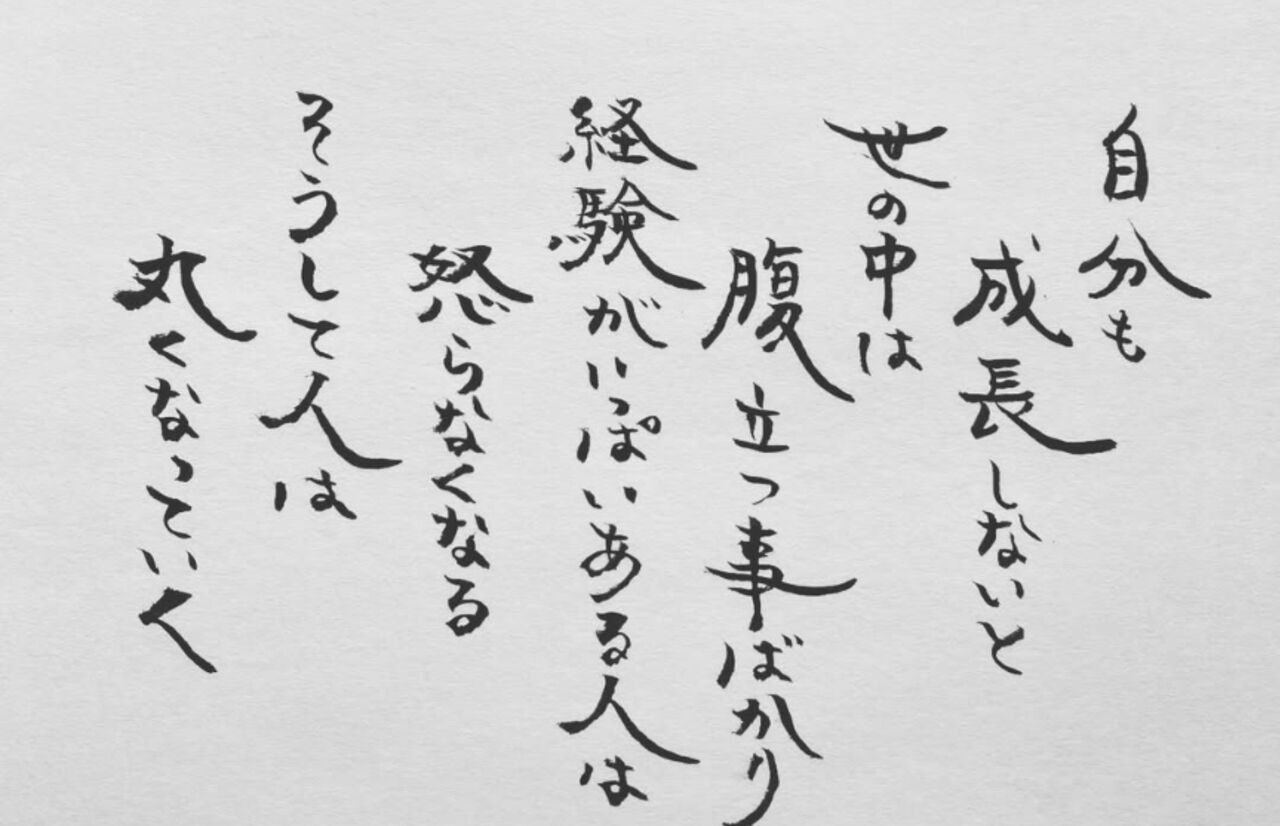 自分も
成長しないと
世の中は
腹立つ事ばかり
経験がいっぱいある人は
怒らなくなる
そうして人は
丸くなっていく